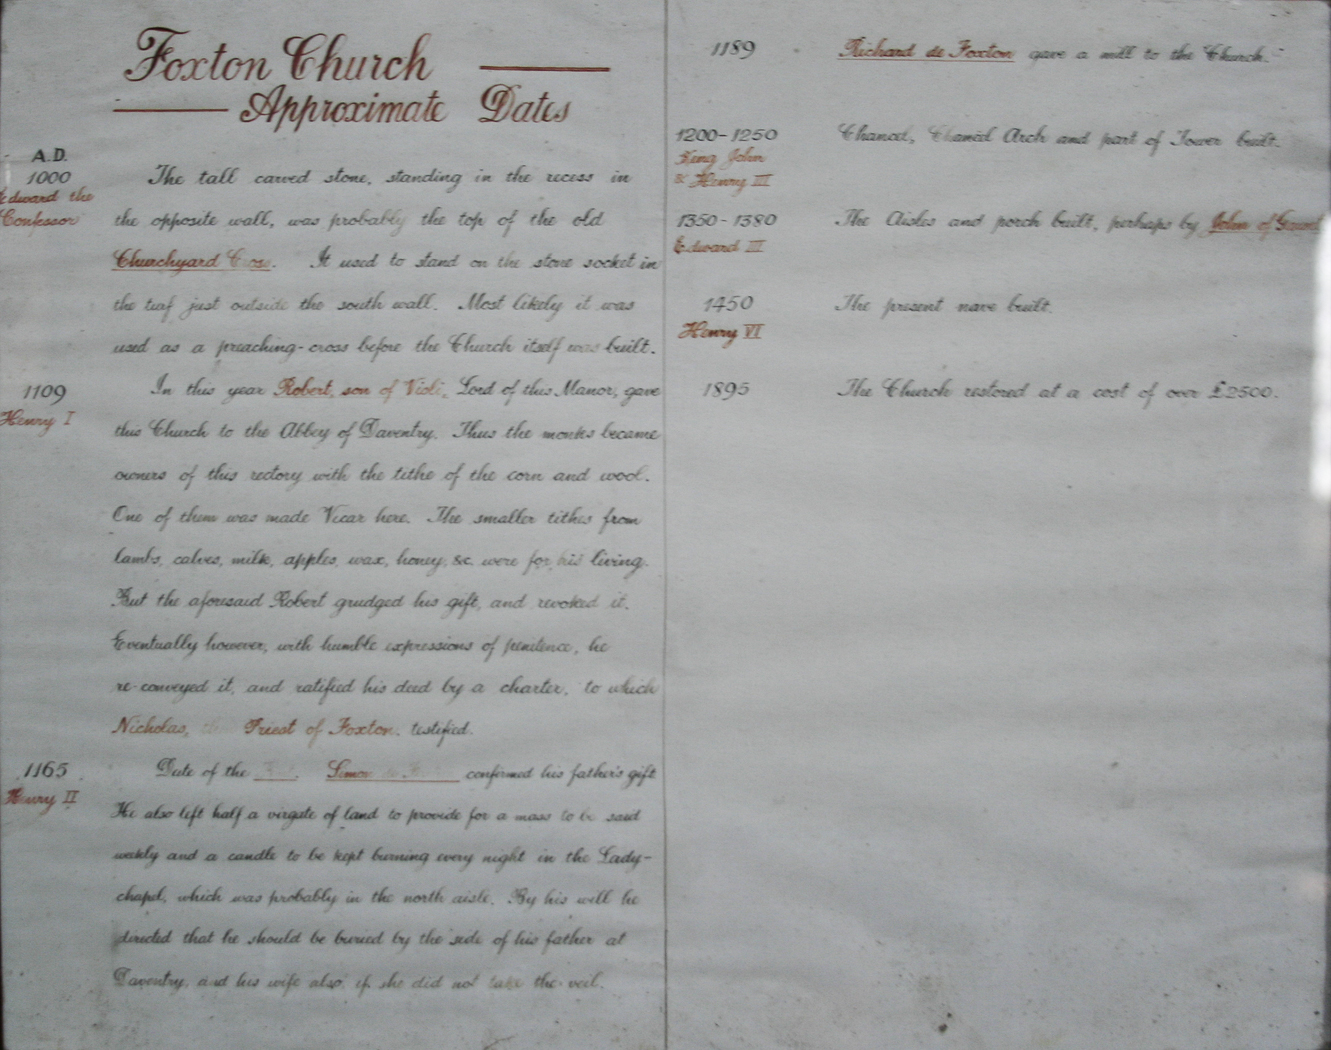 Foxton Church
Approximate Dates
A.D.
1000
Edward the
Confessor
The tall carved stone, standing in the recess in
the opposite wall, was probably the top of the old
Churchyard Cross. It used to stand on the stone socket in
the turf just outside the south wall. Most likely it was
used as a preaching-cross before the Church itself was built.
1109
Henry I
In this year Robert, son of Violi, Lord of this Manor, gave
this Church to the Abbey of Daventry. Thus the monks became
owners of this rectory with the tithe of the corn and wool.
One of them was made Vicar here. The smaller tithes from
lambs, calves, milk, apples, wax, honey, &c. were for his living.
But the aforesaid Robert grudged his gift, and revoked it.
Eventually however, with humble expressions of penitence, he
re-conveyed it, and ratified his deed by a charter, to which
Nicholas, the Priest of Foxton, testified.
1165
Henry II
Date of the Simon confirmed his father's gift
He also left half a virgate of land to provide for a mass to be said
weekly and a candle to be kept burning every night in the Lady-
chapel, which was probably in the north aisle. By his will he
directed that he should be buried by the side of his father at
Daventry, and his wife also, if she did not take the veil.
1189
Richard de Foxton gave a mill to the Church.-
1200-1250
King John
& Henry III
Chancel, Chancel Arch and part of Tower built.
1350-1380
Edward III
The Aisles and porch built, perhaps by John of Gaunt
1450
Henry VI
The present nave built.
1895
The Church restored at a cost of over £2500.